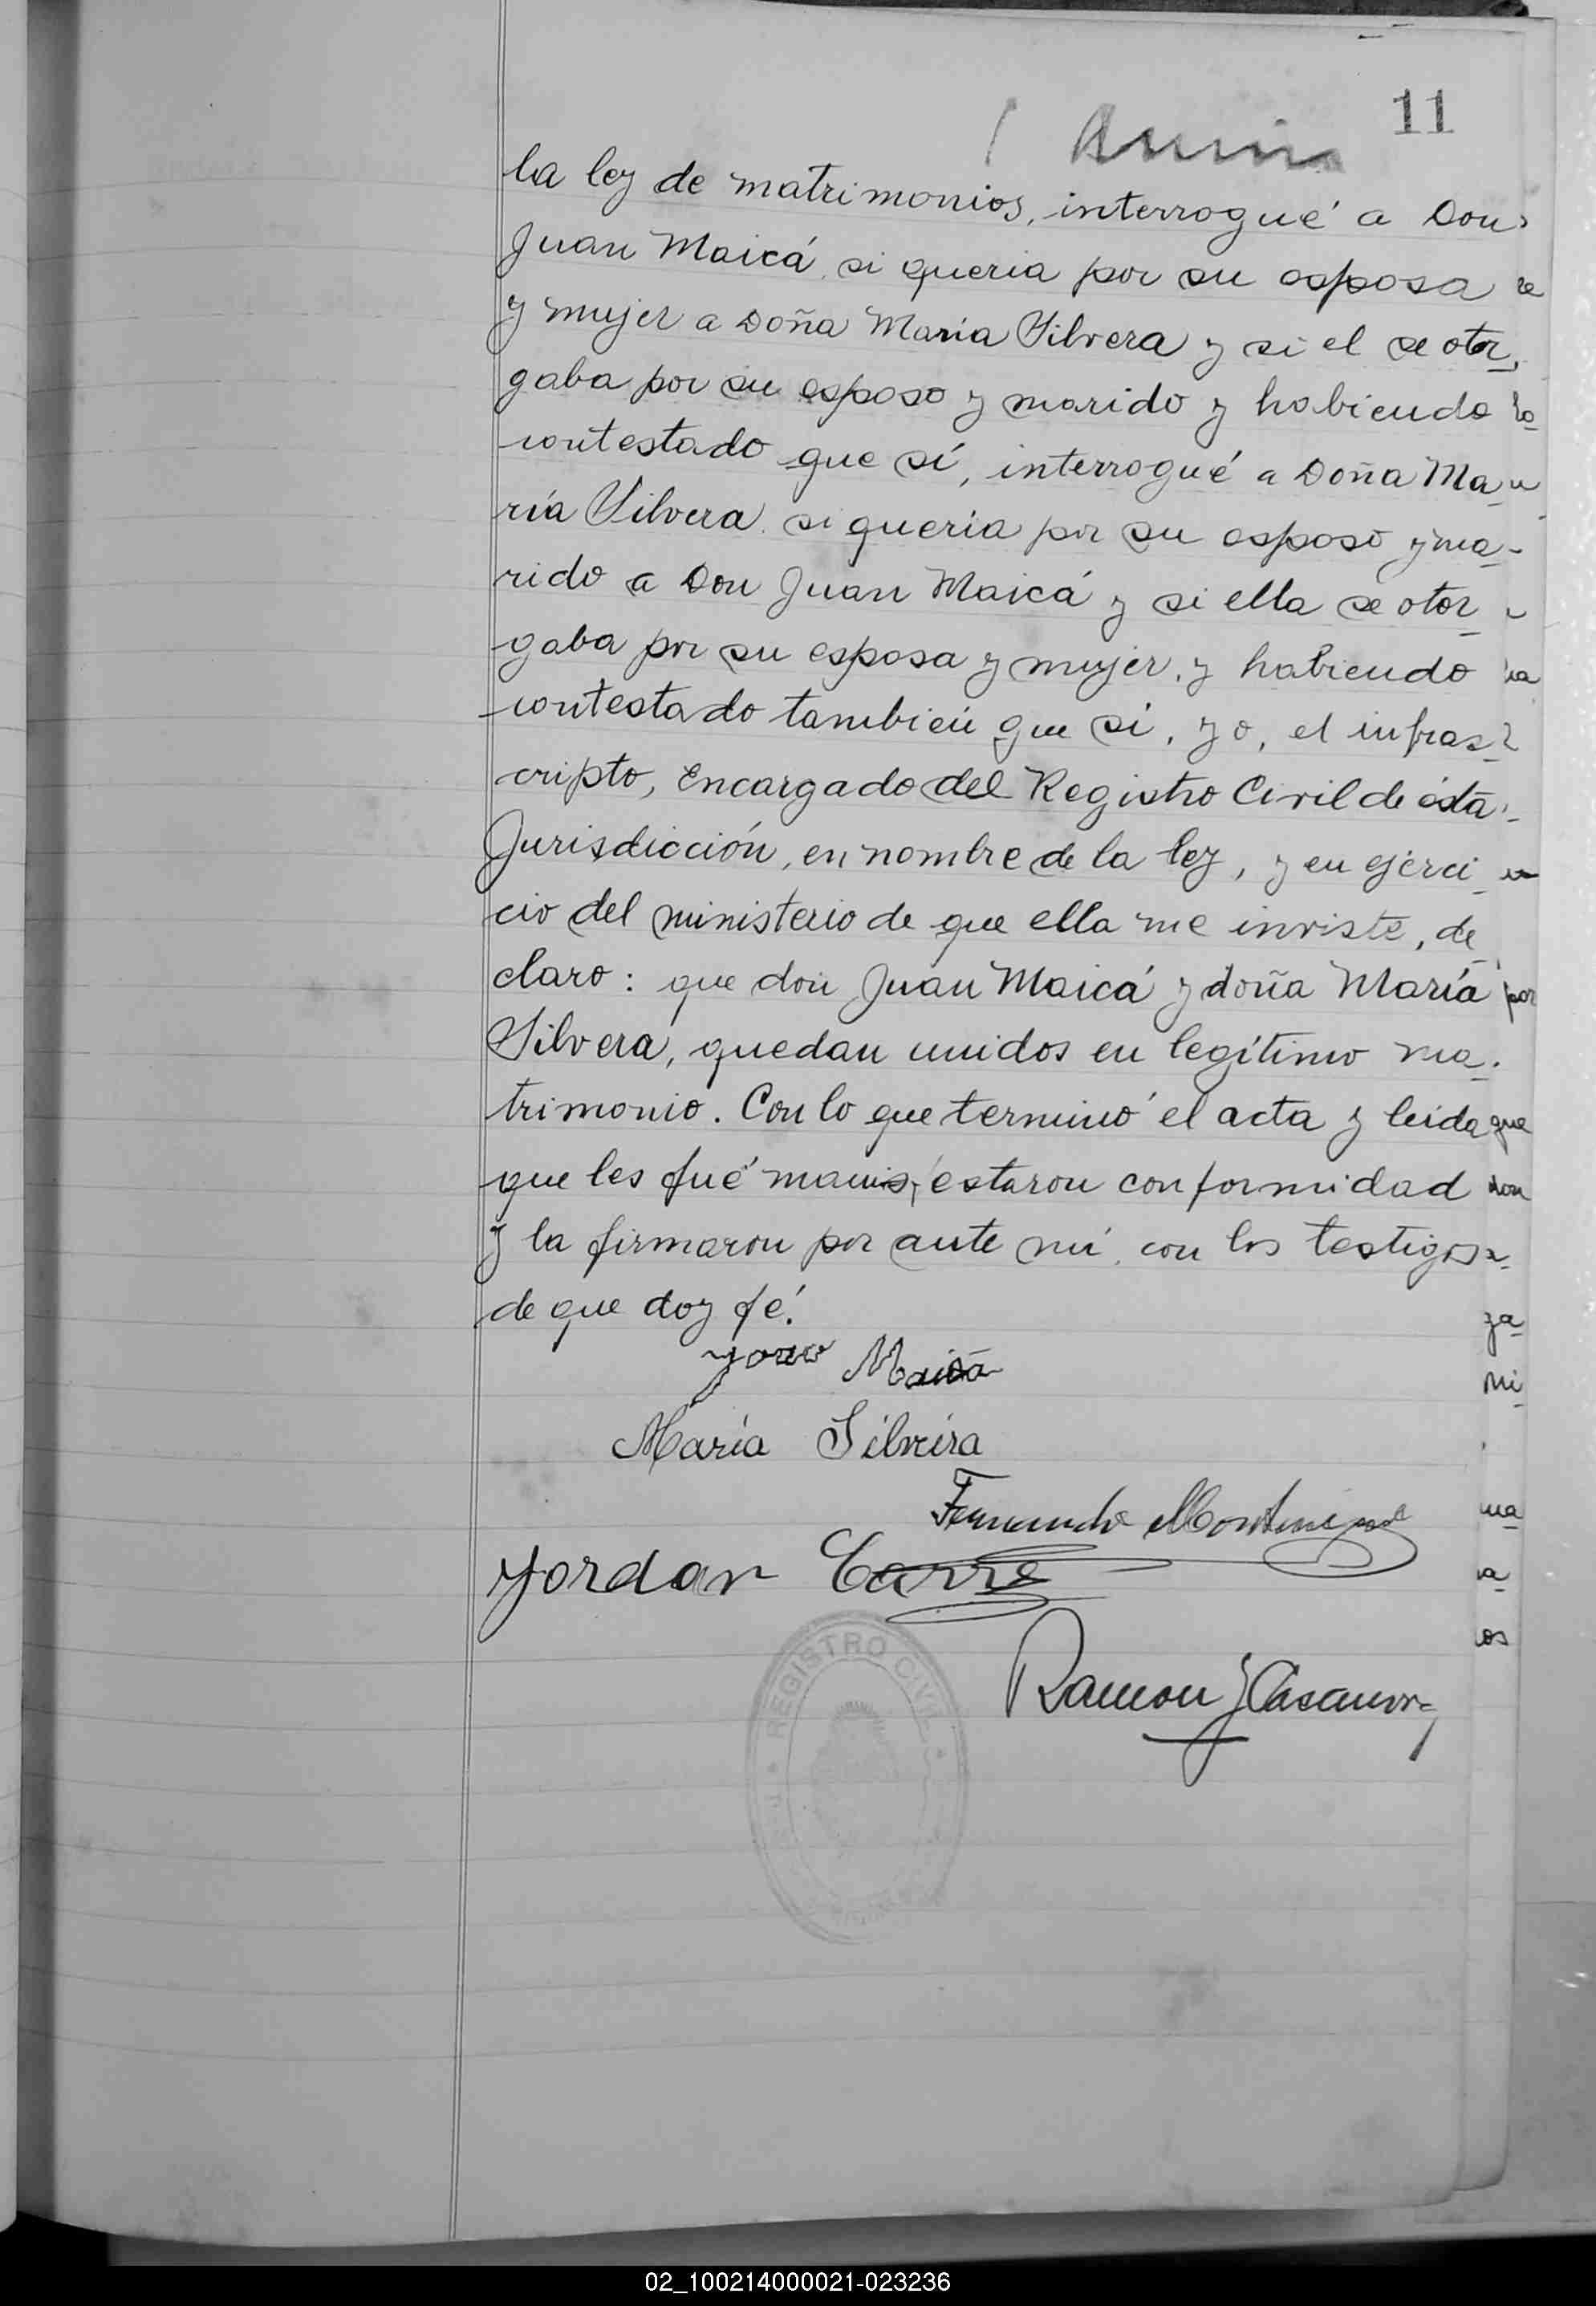 11
la ley de matrimonios, interrogué a Don
Juan Maicá si queria por su esposa
y mujer a Doña María Silvera y si el se otor
gaba por su esposo y marido y habiendo
contestado que sí, interrogué a Doña Ma
ría Silvera si queria por su esposo y ma-
rido a Don Juan Maicá y si ella se otor
gaba por su esposa y mujer, y habiendo
contestado también que si, yo, el infras
cripto, Encargado del Registro Civil de ésta
Jurisdicción, en nombre de la ley, y en ejerci
cio del ministerio de que ella me inviste, de
claro: que don Juan Maicá y doña María
Silvera, quedan unidos en legítimo ma
trimonio. Con lo que terminó el acta y leida
que les fué manifestaron conformidad
y la firmaron por ante mí con los testigos
de que doy fé.
Maicá
María Silveira
Fernando
Yordan Carre
REGISTRO CIVIL
Ramon J Casanova
02_100214000021-023236